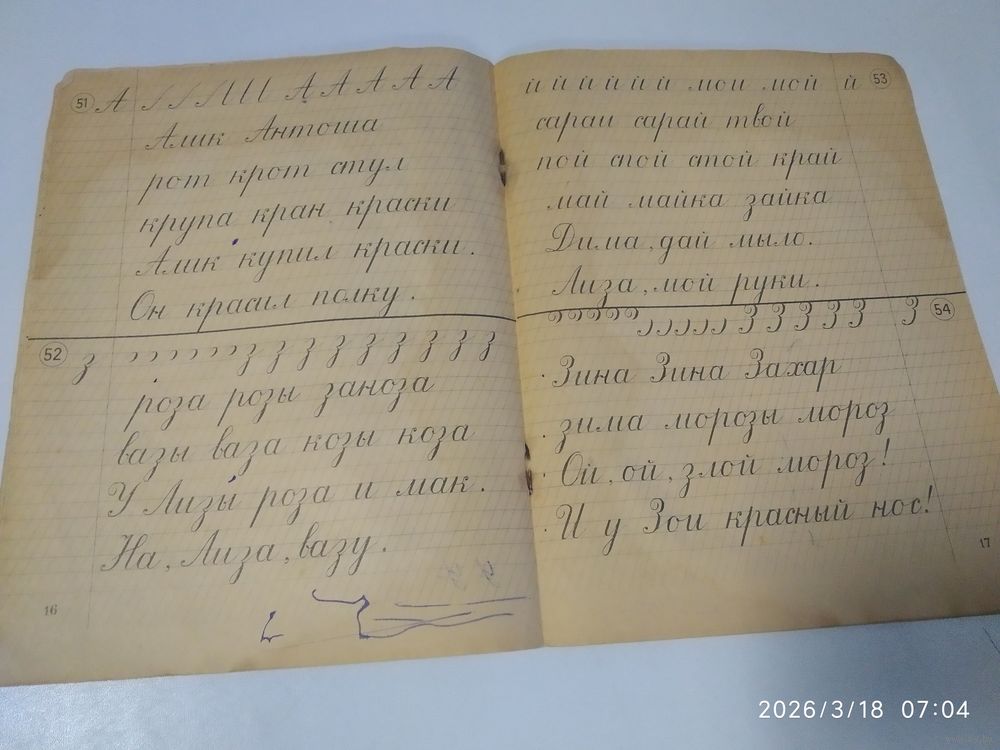 51 А А А А А А
Алик Антоша
рот крот стул
крупа кран краски
Алик купил краски.
Он красил полку.
52 з з з з з з з з з з
роза розы заноза
вазы ваза козы коза
У Лизы роза и мак.
На, Лиза, вазу.
16
й й й й й й мои мой й 53
сараи сарай твой
пой спой стой край
май майка зайка
Дима, дай мыло.
Лиза, мой руки.
З З З З З З 54
Зина Зина Захар
зима морозы мороз
Ой, ой, злой мороз!
И у Зои красный нос!
17
2026/3/18 07:04